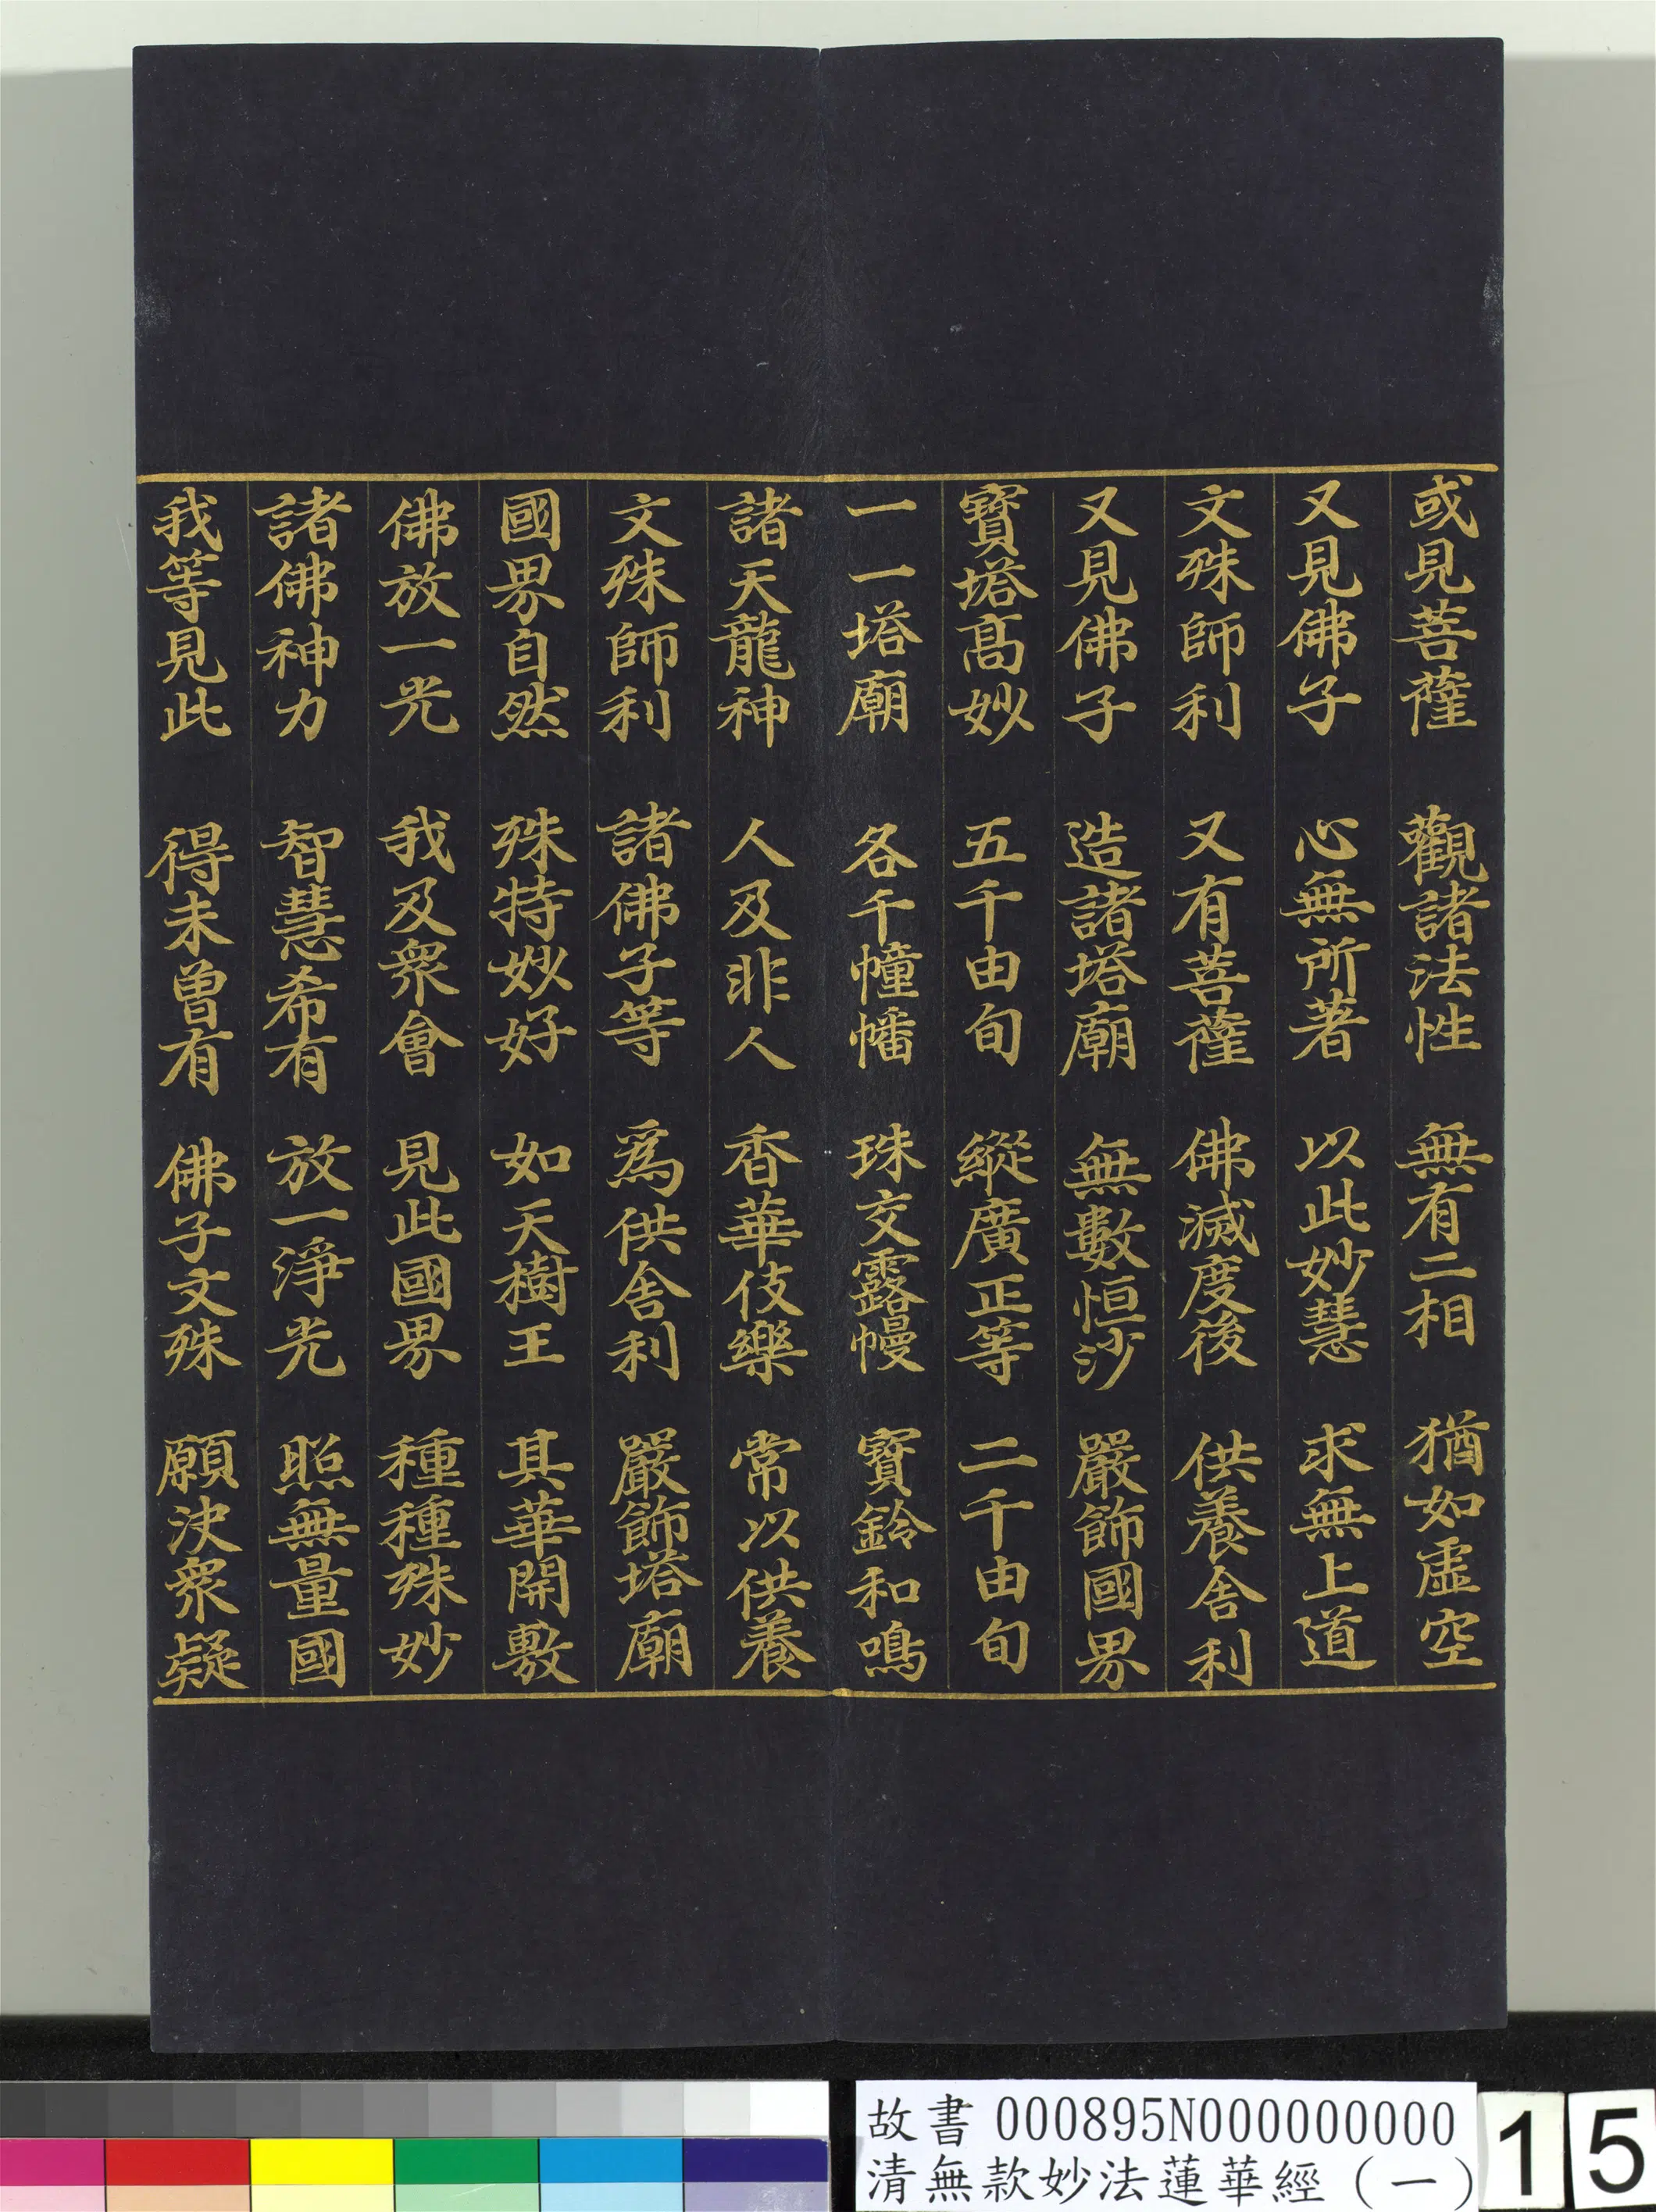 或見菩薩 觀諸法性 無有二相 猶如虛空
又見佛子 心無所著 以此妙慧 求無上道
文殊師利 又有菩薩 佛滅度後 供養舍利
又見佛子 造諸塔廟 無數恒沙 嚴飾國界
寶塔高妙 五千由旬 縱廣正等 二千由旬
一一塔廟 各千幢幡 珠交露幔 寶鈴和鳴
諸天龍神 人及非人 香華伎樂 常以供養
文殊師利 諸佛子等 爲供舍利 嚴飾塔廟
國界自然 殊特妙好 如天樹王 其華開敷
佛放一光 我及衆會 見此國界 種種殊妙
諸佛神力 智慧希有 放一淨光 照無量國
我等見此 得未曾有 佛子文殊 願決衆疑
故書 000895N000000000
清無款妙法蓮華經（一）
15